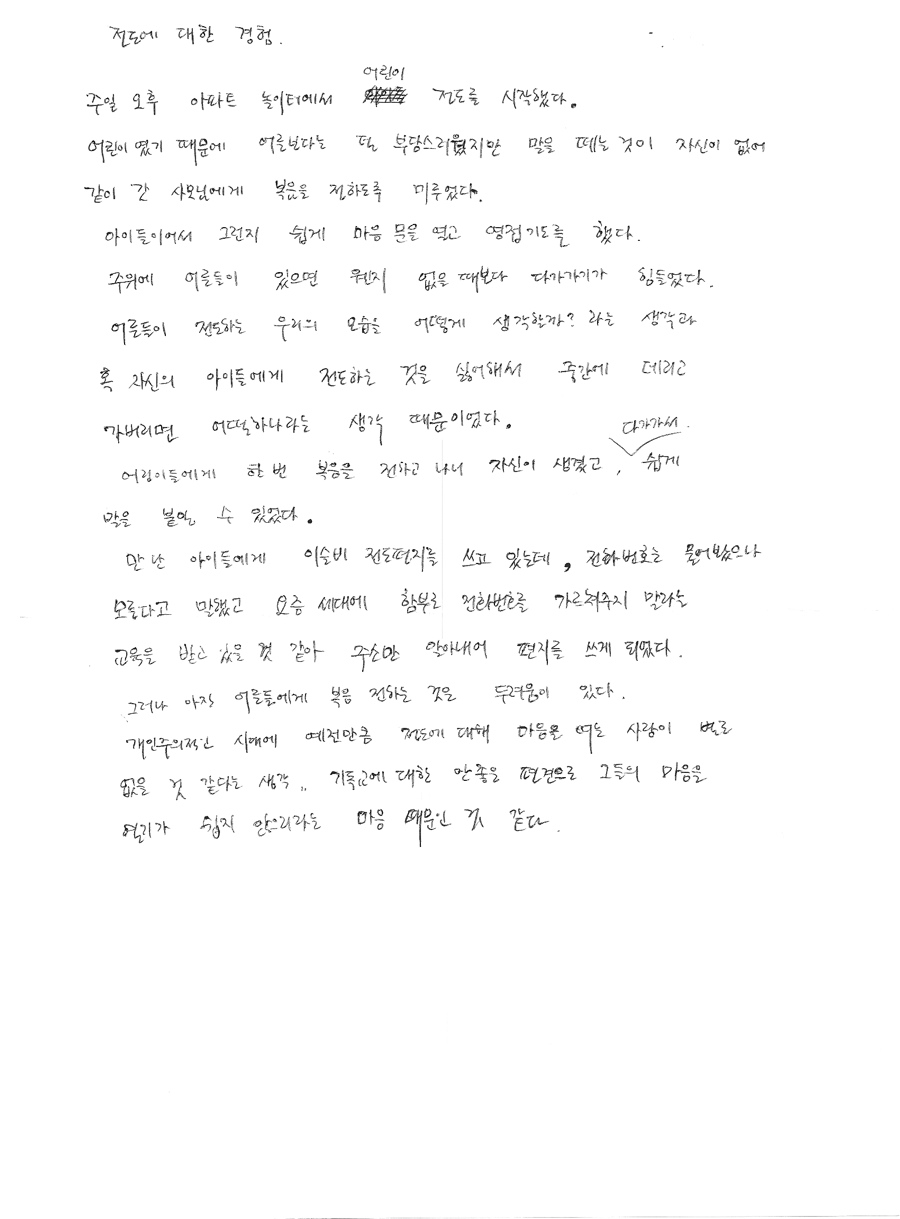 전도에 대한 경험.
주일 오후 아파트 놀이터에서 어린이 전도를 시작했다.
어린이 였기 때문에 어른보다는 덜 부담스러웠지만 말을 떼는 것이 자신이 없어
같이 간 사모님에게 복음을 전하도록 미루었다.
아이들이어서 그런지 쉽게 마음 문을 열고 영접기도를 했다.
주위에 어른들이 있으면 웬지 없을 때보다 다가가기가 힘들었다.
어른들이 전도하는 우리의 모습을 어떻게 생각할까? 라는 생각과
혹 자신의 아이들에게 전도하는 것을 싫어해서 중간에 데리고
가버리면 어떻하나라는 생각 때문이었다.
어린이들에게 한 번 복음을 전하고 나니 자신이 생겼고, 다가가서 쉽게
말을 붙일 수 있었다.
만난 아이들에게 이슬비 전도편지를 쓰고 있는데, 전화번호는 물어봤으나
모른다고 말했고 요즘 세대에 함부로 전화번호를 가르쳐주지 말라는
교육을 받고 있을 것 같아 주소만 알아내어 편지를 쓰게 되었다.
그러나 아직 어른들에게 복음 전하는 것은 두려움이 있다.
개인주의적인 시대에 예전만큼 전도에 대해 마음을 여는 사람이 별로
없을 것 같다는 생각.. 기독교에 대한 안좋은 편견으로 그들의 마음을
열기가 쉽지 않으리라는 마음 때문인 것 같다.